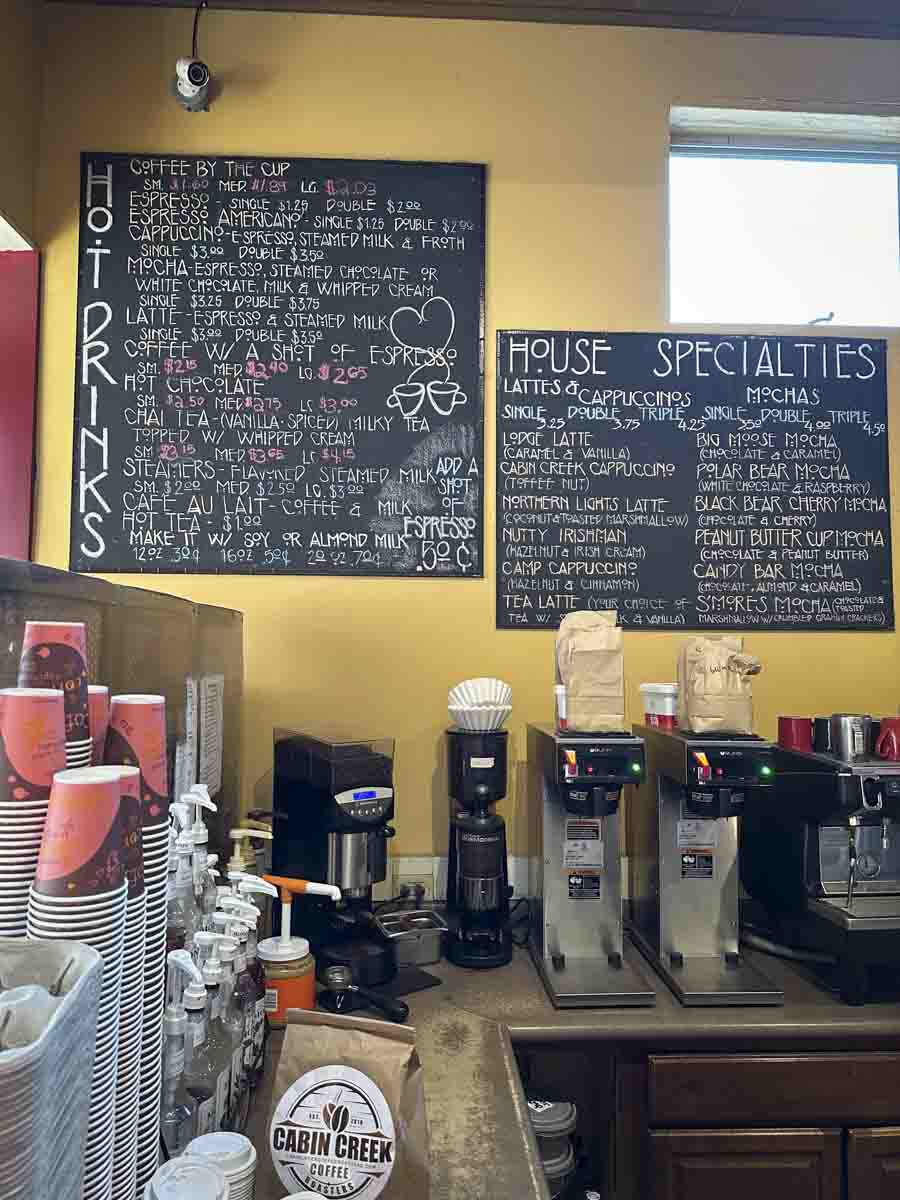 HOT DRINKS
COFFEE BY THE CUP
SM. $1.60 MED. $1.89 LG. $2.03
ESPRESSO - SINGLE $1.25 DOUBLE $2.00
ESPRESSO AMERICANO - SINGLE $1.25 DOUBLE $2.00
CAPPUCCINO - ESPRESSO, STEAMED MILK & FROTH
SINGLE $3.00 DOUBLE $3.50
MOCHA - ESPRESSO, STEAMED CHOCOLATE OR
WHITE CHOCOLATE, MILK & WHIPPED CREAM
SINGLE $3.25 DOUBLE $3.75
LATTE - ESPRESSO & STEAMED MILK
SINGLE $3.00 DOUBLE $3.50
COFFEE W/ A SHOT OF ESPRESSO
SM. $2.15 MED $2.40 LG. $2.65
HOT CHOCOLATE
SM. $2.50 MED. $2.75 LG $3.00
CHAI TEA - (VANILLA-SPICED) MILKY TEA
TOPPED W/ WHIPPED CREAM
SM $3.15 MED $3.65 LG $4.15
STEAMERS - FLAVORED STEAMED MILK
SM. $2.00 MED $2.50 LG. $3.00
CAFE AU LAIT - COFFEE & MILK
HOT TEA - $1.00
MAKE IT W/ SOY OR ALMOND MILK
12 OZ 30¢ 16 OZ 50¢ 20 OZ 70¢
ADD A
SHOT
OF
ESPRESSO
.50¢
HOUSE SPECIALTIES
LATTES & CAPPUCCINOS
SINGLE 3.25 DOUBLE 3.75 TRIPLE 4.25
LODGE LATTE
(CARAMEL & VANILLA)
CABIN CREEK CAPPUCCINO
(TOFFEE NUT)
NORTHERN LIGHTS LATTE
(COCONUT & TOASTED MARSHMALLOW)
NUTTY IRISHMAN
(HAZELNUT & IRISH CREAM)
CAMP CAPPUCCINO
(HAZELNUT & CINNAMON)
TEA LATTE (YOUR CHOICE OF
TEA W/ & VANILLA)
MOCHAS
SINGLE 3.50 DOUBLE 4.00 TRIPLE 4.50
BIG MOOSE MOCHA
(CHOCOLATE & CARAMEL)
POLAR BEAR MOCHA
(WHITE CHOCOLATE & RASPBERRY)
BLACK BEAR CHERRY MOCHA
(CHOCOLATE & CHERRY)
PEANUT BUTTER CUP MOCHA
(CHOCOLATE & PEANUT BUTTER)
CANDY BAR MOCHA
(CHOCOLATE, ALMOND & CARAMEL)
S'MORES MOCHA (CHOCOLATE & TOASTED
MARSHMALLOW W/ CRUMBLED GRAHAM CRACKERS)
BUNN
BUNN
EST. 2018
CABIN CREEK
COFFEE
ROASTERS